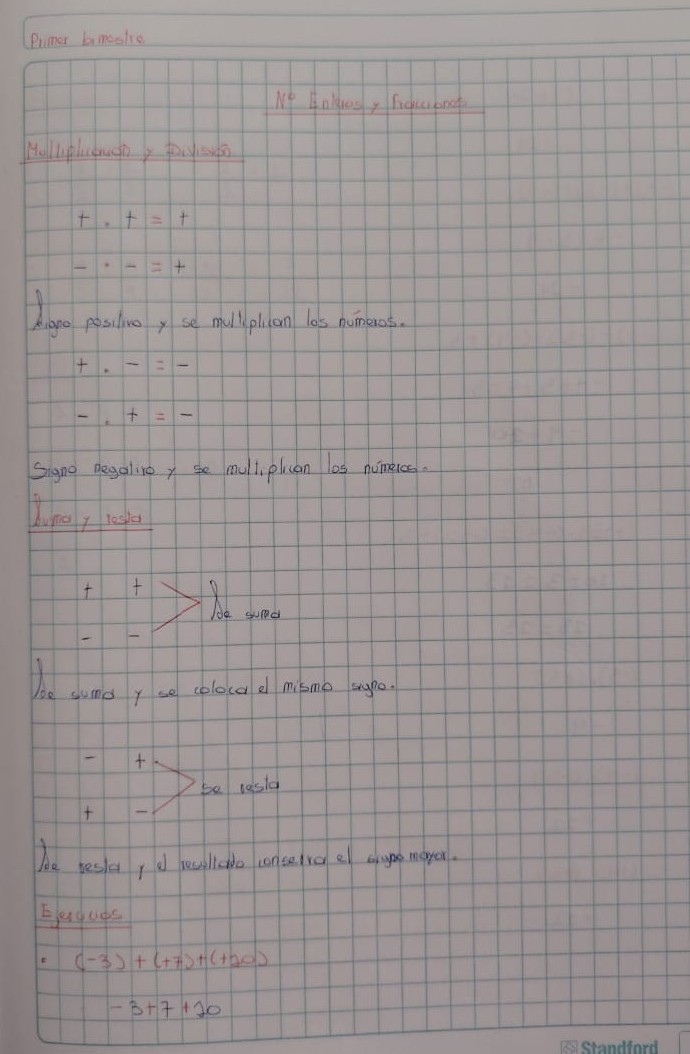 Primer bimestre
N° Enteros y Fracciones
Multiplicación y División
+ . + = +
- . - = +
Signo positivo y se multiplican los números.
+ . - = -
- . + = -
Signo negativo y se multiplican los números.
Suma y resta
+ +
Se suma
- -
Se suma y se coloca el mismo signo.
- +
se resta
+ -
Se resta y el resultado conserva el signo mayor.
Ejercicios
• (-3) + (+7) + (+20)
-3+7+20
Standford